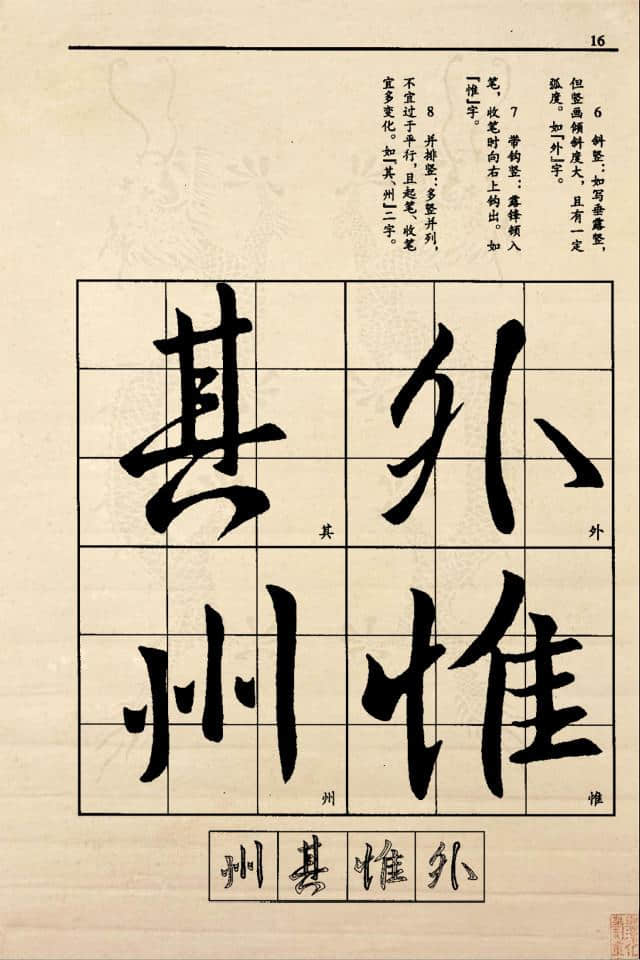 16
6　斜竖：如写垂露竖，
但竖画倾斜度大，且有一定
弧度。如『外』字。
7　带钩竖：露锋顿入
笔，收笔时向右上钩出。如
『惟』字。
8　并排竖：多竖并列，
不宜过于平行，且起笔、收笔
宜多变化。如『其、州』二字。
外
外
惟
惟
其
其
州
州
外
惟
其
州